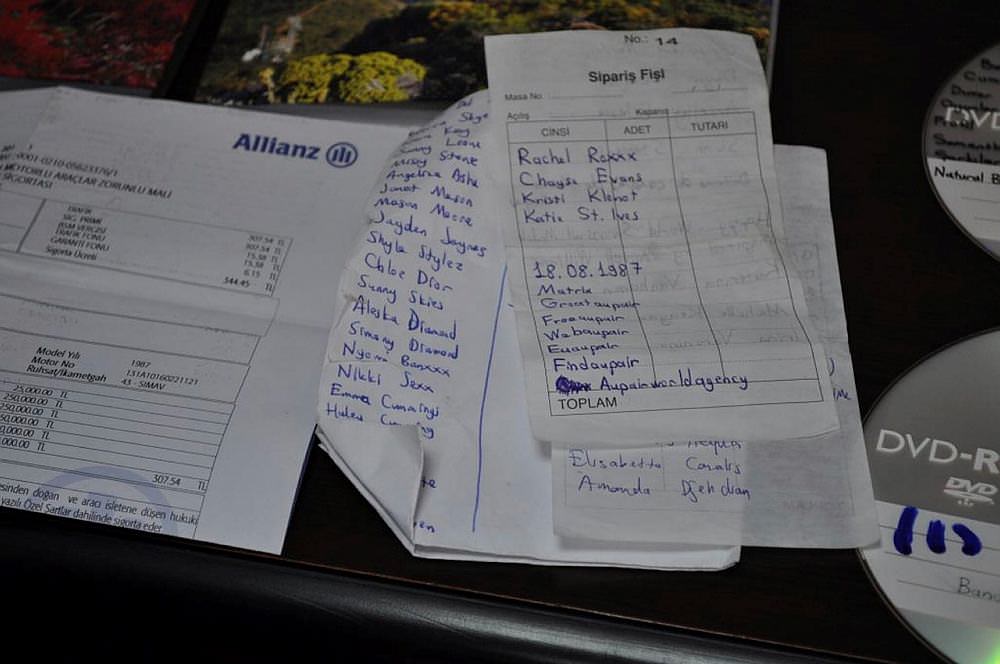 Allianz
0001-0210-05623376/1
MOTORLU ARAÇLAR ZORUNLU MALİ
SİGORTASI
TRAFİK
SİG. PRİMİ 307.54 TL
BSM VERGİSİ 307.54 TL
TRAFİK FONU 15.38 TL
GARANTİ FONU 15.38 TL
Sigorta Ücreti 6.15 TL
344.45 TL
Model Yılı 1987
Motor No 131A10160221121
Ruhsat/İkametgah 43 - SIMAV
25,000.00 TL
250,000.00 TL
250,000.00 TL
50,000.00 TL
000.00 TL
307.54 TL
esinden doğan ve aracı işletene düşen hukuki
yazılı Özel Şartlar dahilinde sigorta eder
Skye
Kay
Sunny Leone
Missy Stone
Angelina Ashe
Janet Mason
Mason Moore
Jayden Jaymes
Shyla Stylez
Chloe Dior
Sunny Skies
Aleska Diamond
Simony Diamond
Nyomi Banxxx
Nikki Sexx
Emma Cummings
Helen Cumming
No.: 14
Sipariş Fişi
Masa No.
Açılış Kapanış
CİNSİ ADET TUTARI
Rachel Roxxx
Chayse Evans
Kristi Klenot
Katie St. Ives
18.08.1987
Matrix
Greataupair
Freeaupair
Webaupair
Euaupair
Findaupair
Aupairworldagency
TOPLAM
Elisabetta Canalis
Amanda Djehdian
DVD
Natural B
DVD-R
DVD
Band